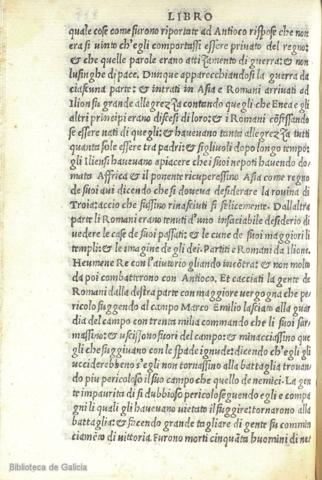 LIBRO
quale cose come furono riportate ad Antioco rispose che non
era si uinto ch'egli comportassi essere priuato del regno:
& che quelle parole erano attizzamento di guerra: & non
lusinghe di pace. Dunque apparecchiandosi la guerra da
ciascuna parte: & intrati in Asia e Romani arriuati ad
Ilion fu grande allegrezza contando quegli che Enea e gli
altri principi erano discesi di loro: & i Romani cõfessando
se essere nati di quegli: & haueuano tanta allegrezza tuti
quanta sole essere tra padri: & figliuoli dopo lungo tempo:
gli Iliensi haueuano apiacere che i suoi nepoti hauendo do
mata Affrica & il ponente ricuperessino Asia come regno
de suoi aui dicendo che si doueua desiderare la rouina di
Troia: accio che fussino rinasciuti si felicemente. Dallaltra
parte li Romani erano tenuti d'uno insaciabile desiderio di
uedere le case de suoi passati: & le cune de suoi maggiori li
templi: & le imagine de gli dei. Partiti e Romani da Ilione.
Heumene Re con l'aiutorio gliando incõtra: & non molto
da poi combatterono con Antioco. Et cacciati la gente de
Romani dalla destra parte con maggiore uergogna che pe
ricolo fuggendo al campo Marco Emilio lasciato alla guar
dia del campo con trenta milia commando che li suoi sar
massino: & uscissono fuori del campo: & minacciasso que
gli che fuggiuano con le spade ignude: dicendo ch'egli gli
ucciderebbeno s'egli non tornassino alla battaglia trouan-
do piu pericoloso il suo campo che quello de nemici. La gen
te impaurita di si dubbioso pericolo seguendo egli e compa
gni li quali gli haueuano uietato il fuggire: tornarono alla
battaglia: & facendo grande tagliare di gente fu commin
ciamẽto di uittoria. Furono morti cinquãta huomini di ne
Biblioteca de Galicia